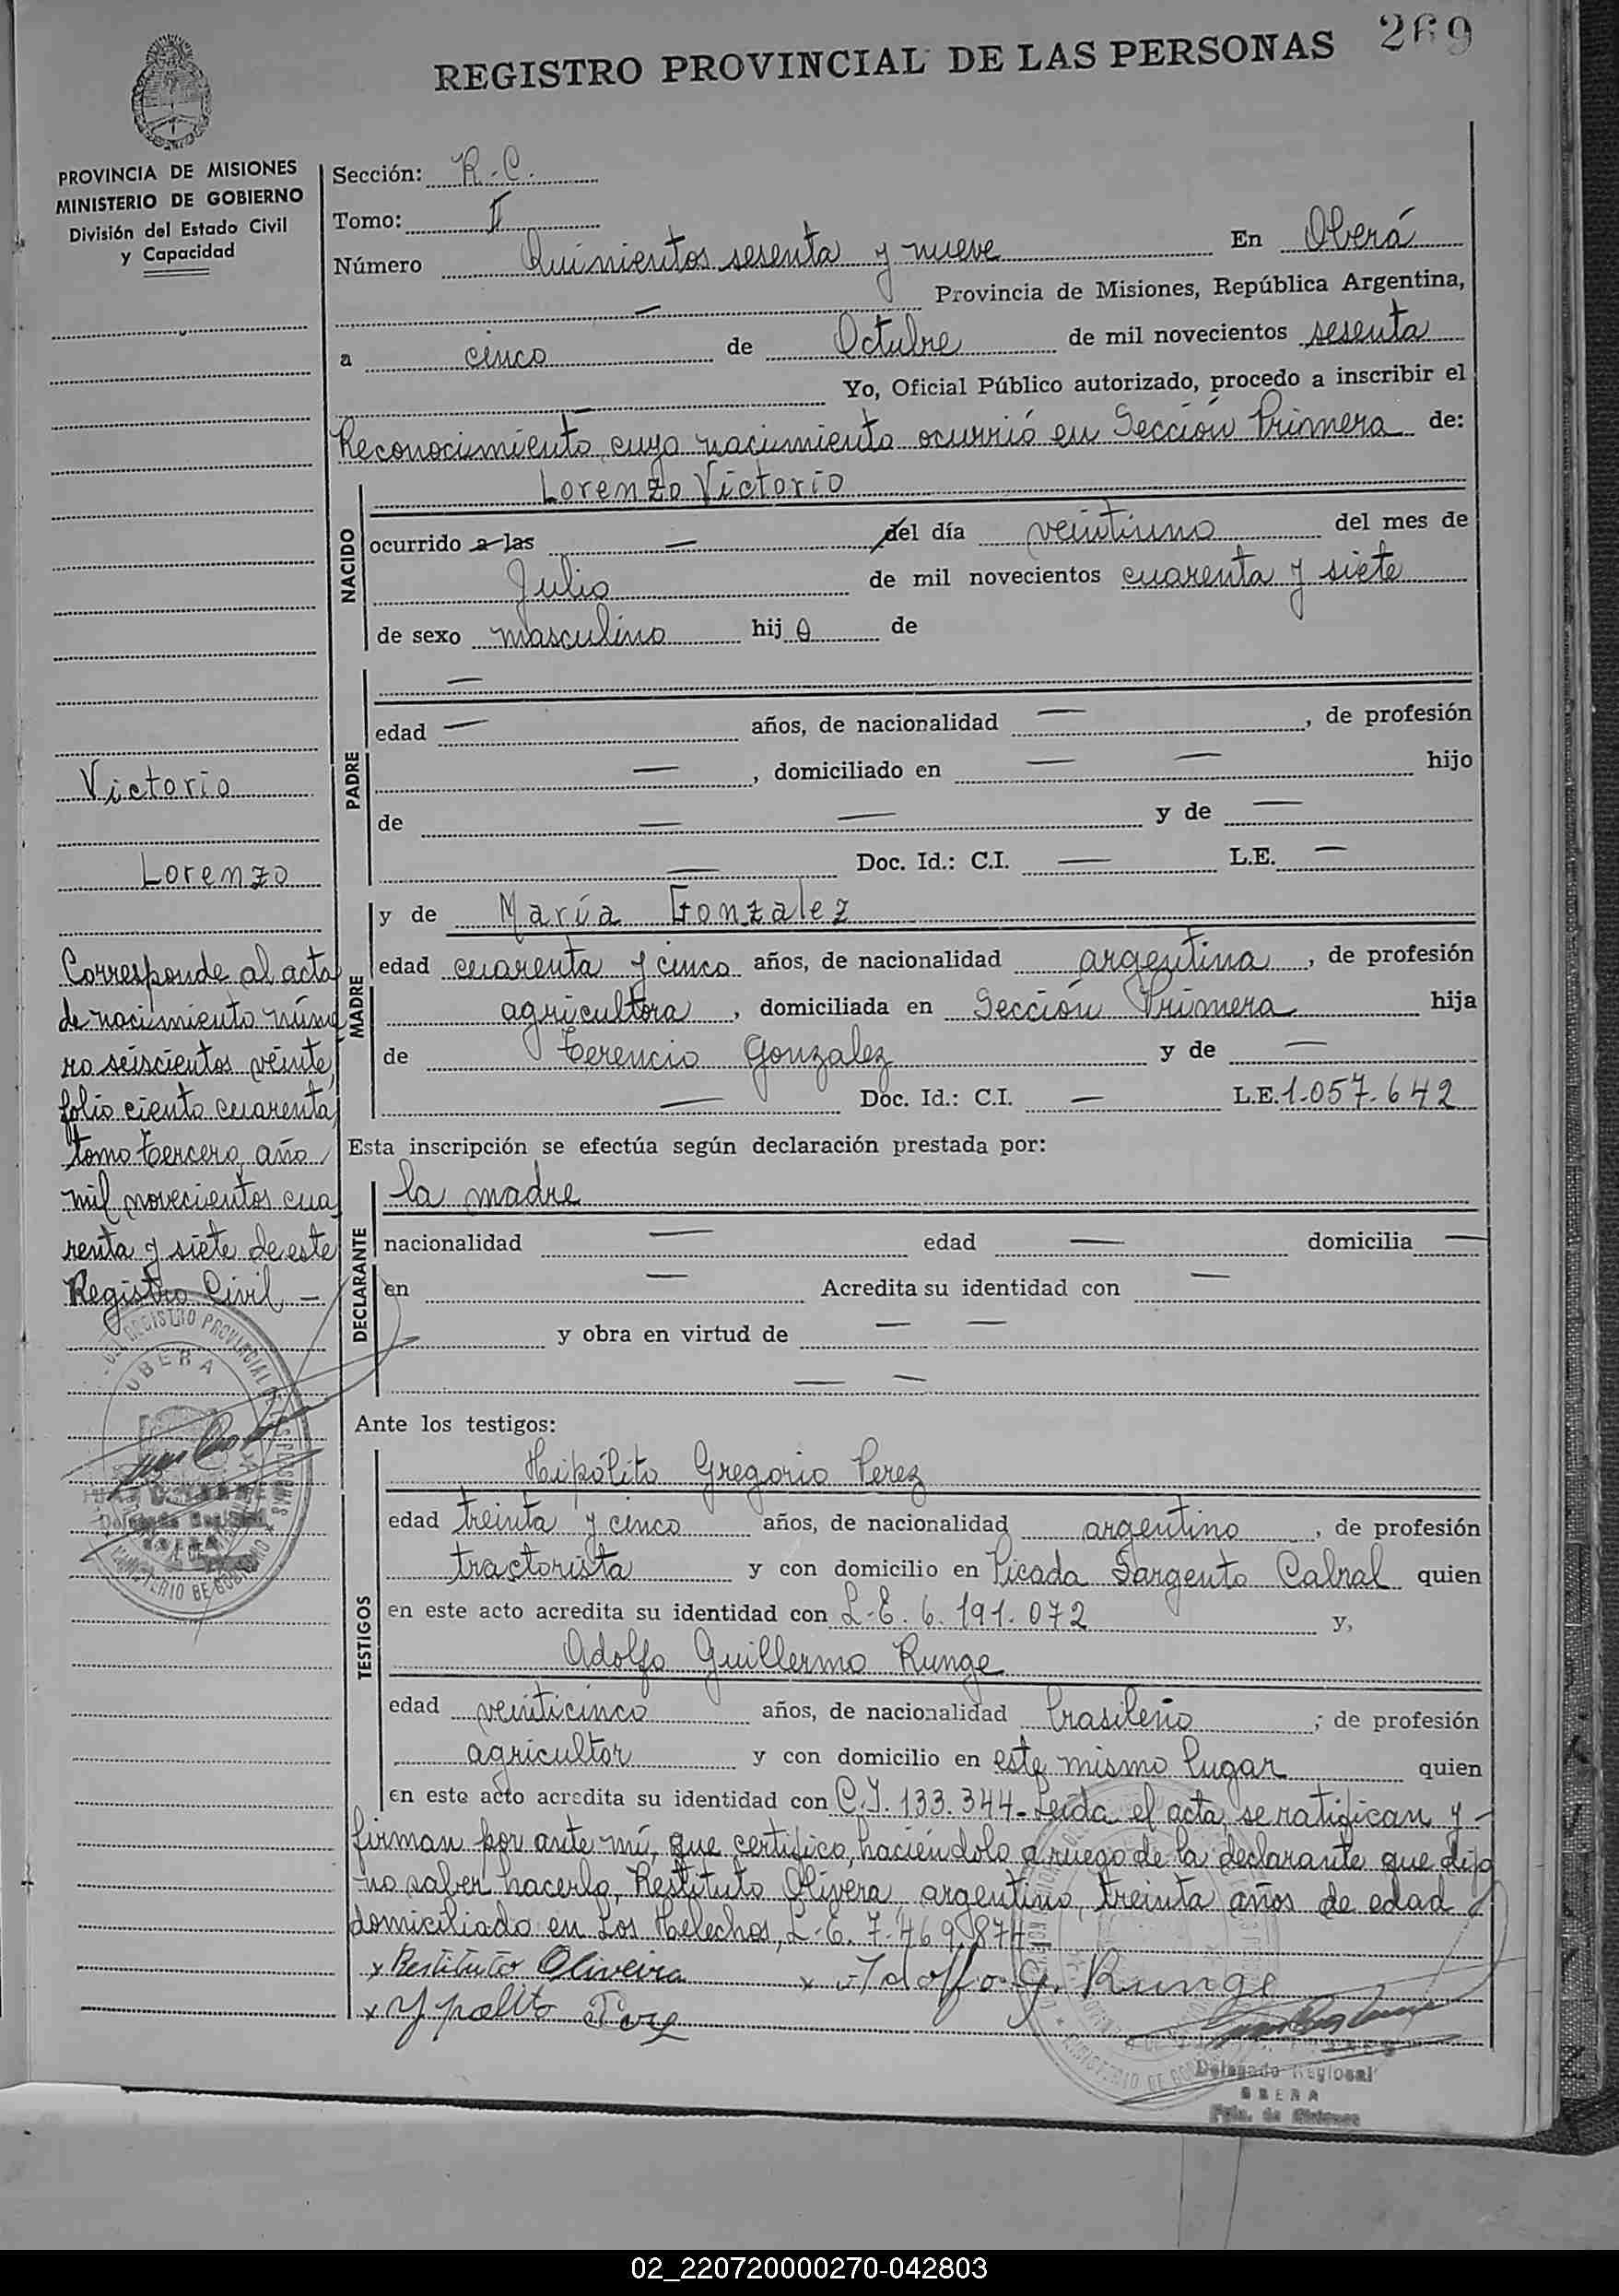 269
REGISTRO PROVINCIAL DE LAS PERSONAS
PROVINCIA DE MISIONES
MINISTERIO DE GOBIERNO
División del Estado Civil
y Capacidad
Sección: R.C.
Tomo: II
Número Quinientos sesenta y nueve En Oberá
— Provincia de Misiones, República Argentina,
a cinco de Octubre de mil novecientos sesenta
— Yo, Oficial Público autorizado, procedo a inscribir el
Reconocimiento, cuyo nacimiento ocurrió en Sección Primera de:
NACIDO
Lorenzo Victorio
ocurrido a las — del día veintiuno del mes de
Julio de mil novecientos cuarenta y siete
de sexo masculino hijo de
PADRE
—
edad — años, de nacionalidad —, de profesión
—, domiciliado en — — hijo
de — — y de —
— Doc. Id.: C.I. — L.E. —
MADRE
y de María Gonzalez
edad cuarenta y cinco años, de nacionalidad argentina, de profesión
agricultora, domiciliada en Sección Primera hija
de Terencio Gonzalez y de —
— Doc. Id.: C.I. — L.E. 1.057.642
Esta inscripción se efectúa según declaración prestada por:
DECLARANTE
la madre
nacionalidad — edad — domicilia —
en — Acredita su identidad con —
y obra en virtud de — —
— —
Ante los testigos:
TESTIGOS
Hipólito Gregorio Perez
edad treinta y cinco años, de nacionalidad argentino, de profesión
tractorista y con domicilio en Picada Sargento Cabral quien
en este acto acredita su identidad con L.E. 6.191.072 y,
Adolfo Guillermo Runge
edad veinticinco años, de nacionalidad brasileño; de profesión
agricultor y con domicilio en este mismo lugar quien
en este acto acredita su identidad con C.I. 133.344- Leída el acta, se ratifican y -
firman por ante mí, que certifico, haciéndolo a ruego de la declarante que dijo
no saber hacerlo, Restituto Olivera, argentino, treinta años de edad
domiciliado en Los Helechos, L.E. 7.469.874
x Restituto Oliveira x Adolfo G. Runge
x Ypolito Perez
Delegado Regional
OBERA
Pcia. de Misiones
Victorio
Lorenzo
Corresponde al acta
de nacimiento núme
ro seiscientos veinte,
folio ciento cuarenta,
tomo tercero, año
mil novecientos cua
renta y siete de este
Registro Civil —
REGISTRO PROVINCIAL DE LAS PERSONAS
OBERA
MINISTERIO DE GOBIERNO
02_220720000270-042803